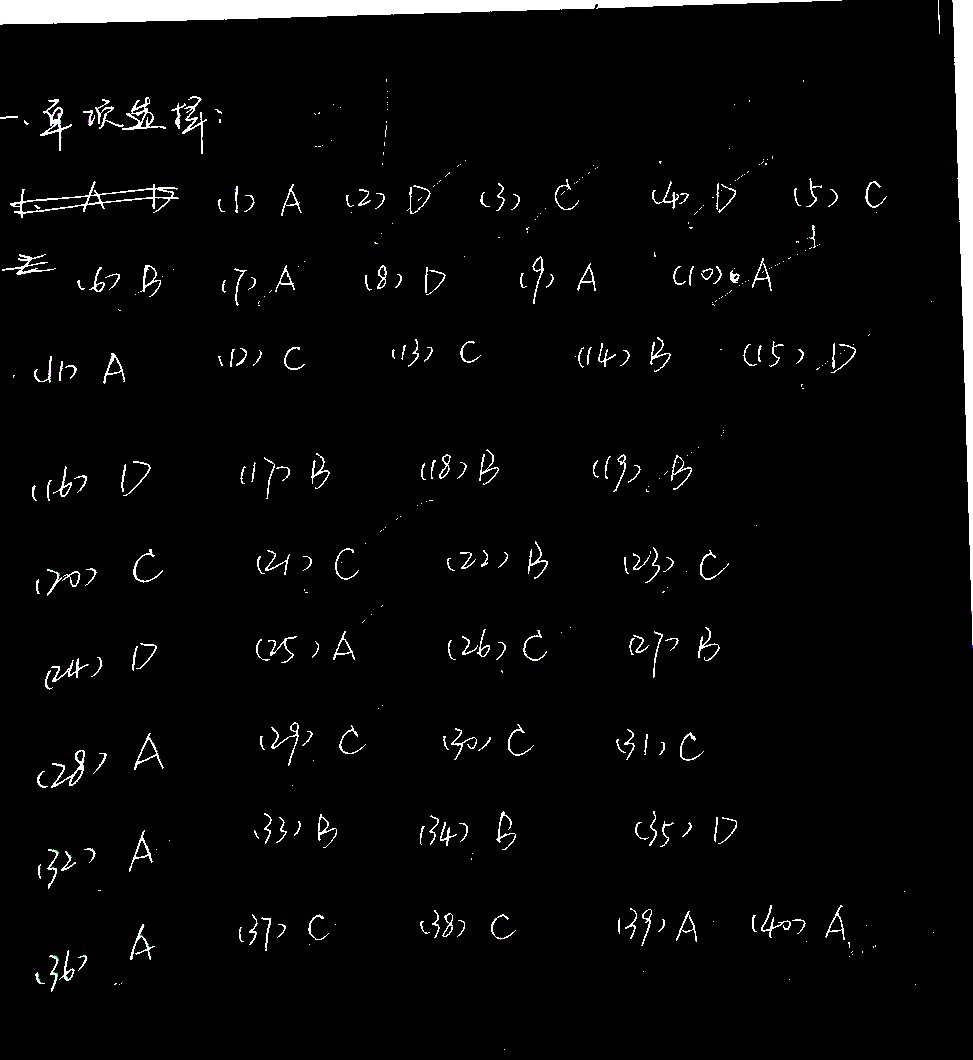 一、单项选择:
(1) A (2) D (3) C (4) D (5) C
(6) B (7) A (8) D (9) A (10) A
(11) A (12) C (13) C (14) B (15) D
(16) D (17) B (18) B (19) B
(20) C (21) C (22) B (23) C
(24) D (25) A (26) C (27) B
(28) A (29) C (30) C (31) C
(32) A (33) B (34) B (35) D
(36) A (37) C (38) C (39) A (40) A